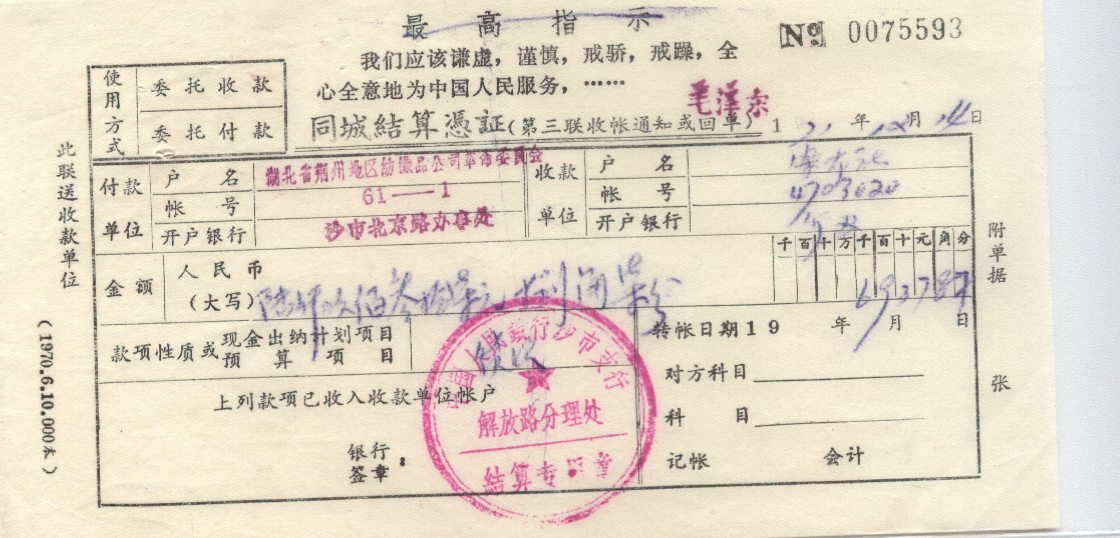 最高指示
№ 0075593
我们应该谦虚，谨慎，戒骄，戒躁，全
心全意地为中国人民服务，……
毛泽东
使用方式
委托收款
委托付款
同城结算凭证(第三联收帐通知或回单) 1 年 月 14 日
付款单位
户名 湖北省荆州地区纺织品公司革命委员会
帐号 61——1
开户银行 沙市北京路办事处
收款单位
户名
帐号 4703020
开户银行
金额
人民币
(大写)
千百十万千百十元角分
款项性质或现金出纳计划项目
预算项目
转帐日期19 年 月 日
上列款项已收入收款单位帐户
对方科目
科目
银行
签章：
记帐 会计
中国人民银行沙市支行
解放路分理处
结算专用章
此联送收款单位
(1970.6.10.000本)
附单据
张